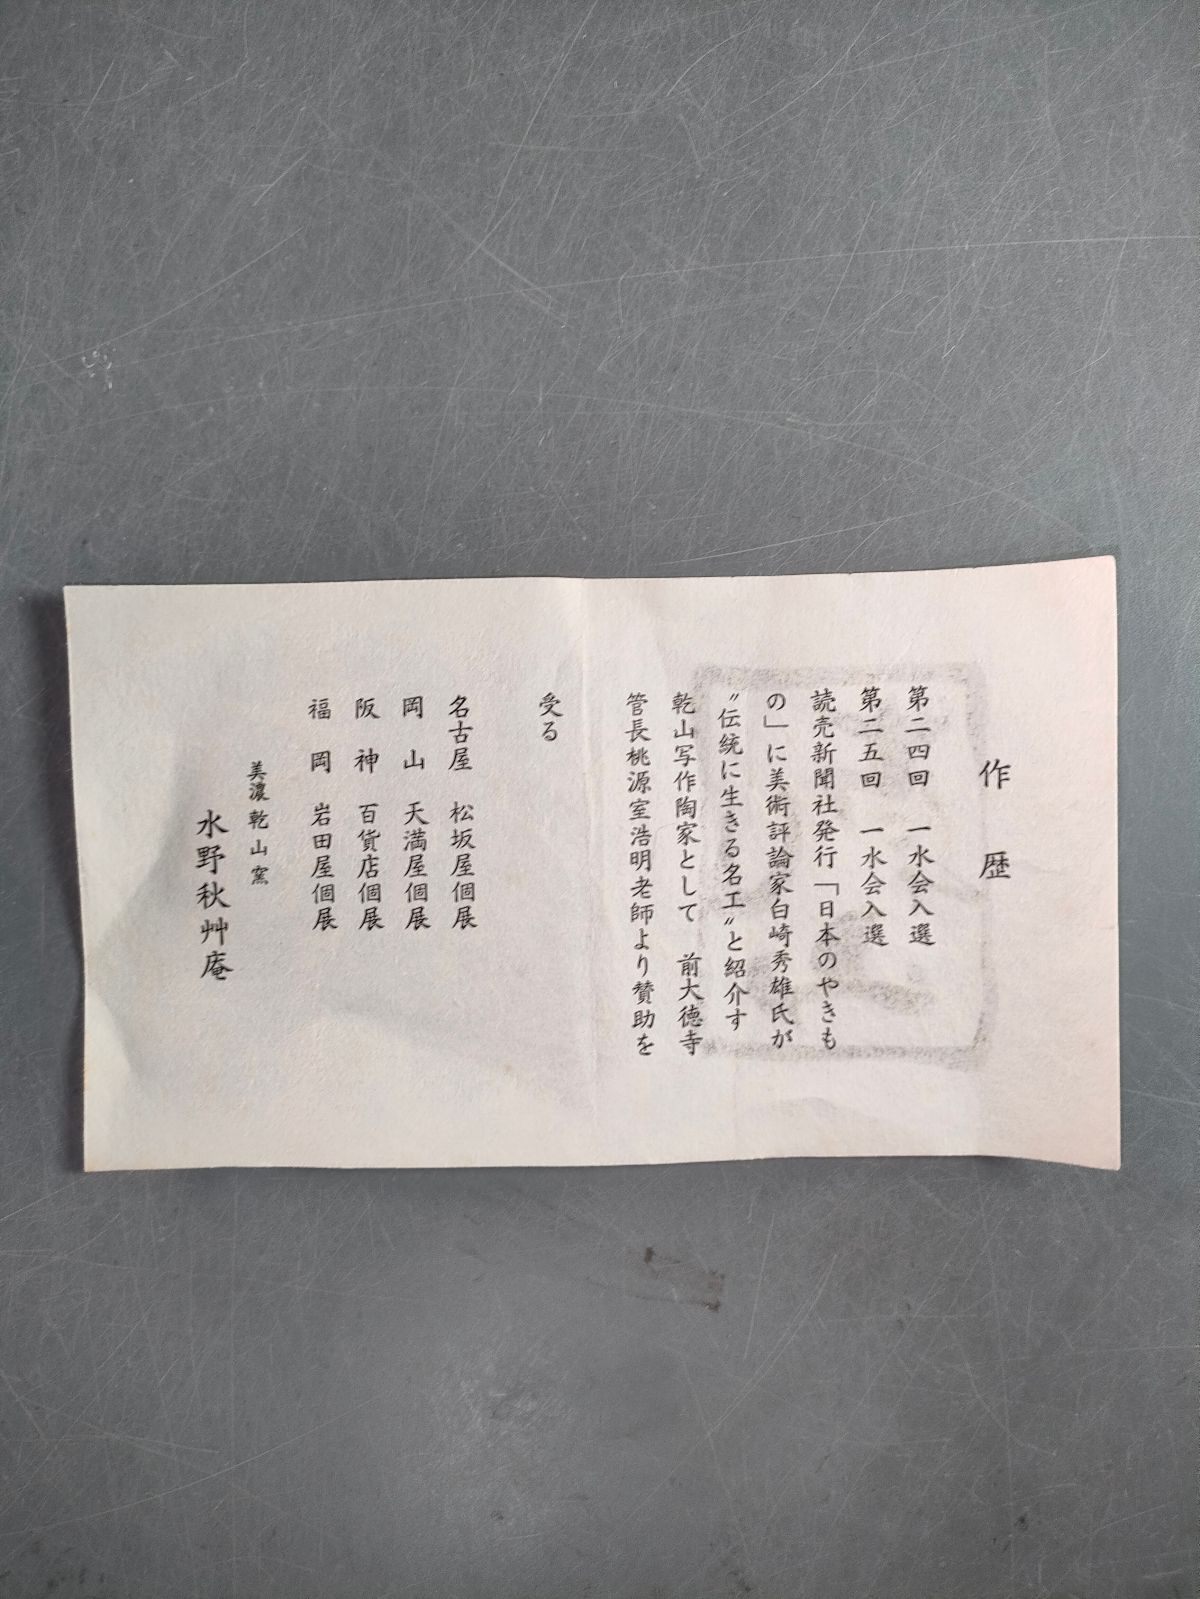 作歴
第二四回 一水会入選
第二五回 一水会入選
読売新聞社発行「日本のやきも
の」に美術評論家白崎秀雄氏が
〝伝統に生きる名工〟と紹介す
乾山写作陶家として 前大徳寺
管長桃源室浩明老師より賛助を
受る
名古屋 松坂屋個展
岡山 天満屋個展
阪神 百貨店個展
福岡 岩田屋個展
美濃乾山窯
水野秋艸庵